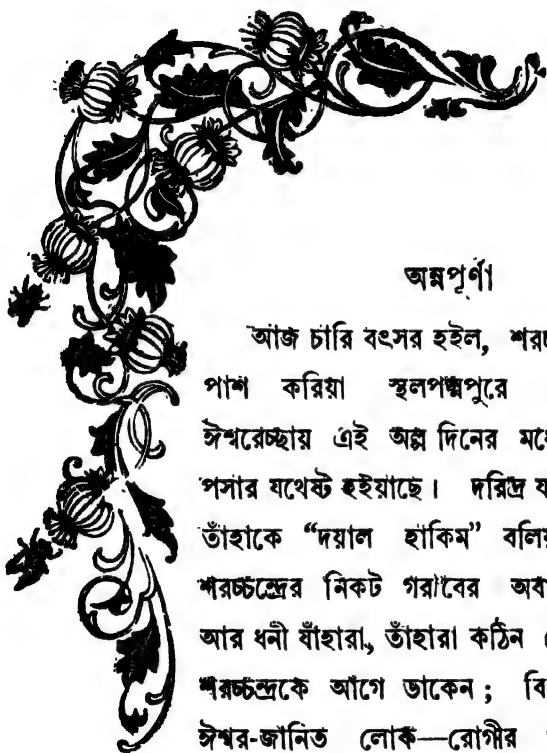 অন্নপূর্ণা
আজ চারি বৎসর হইল, শরচ
পাশ করিয়া স্থলপদ্মপুরে
ঈশ্বরেচ্ছায় এই অল্প দিনের মধ্যে
পসার যথেষ্ট হইয়াছে। দরিদ্র য
তাঁহাকে “দয়াল হাকিম” বলিয়
শরচ্চন্দ্রের নিকট গরীবের অবা
আর ধনী যাঁহারা, তাঁহারা কঠিন
শরচ্চন্দ্রকে আগে ডাকেন; বি
ঈশ্বর-জানিত লোক—রোগীর